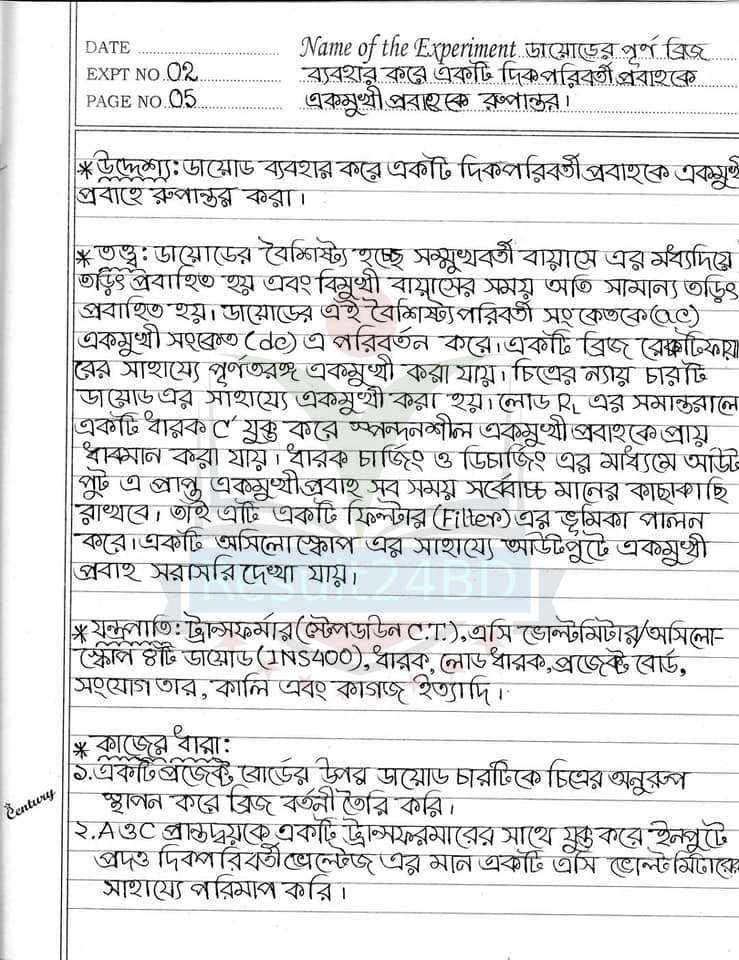 DATE
Name of the Experiment ডায়োডের পূর্ণ ব্রিজ
EXPT NO. 02
ব্যবহার করে একটি দিকপরিবর্তী প্রবাহকে
PAGE NO. 05
একমুখী প্রবাহকে রুপান্তর।
* উদ্দেশ্য: ডায়োড ব্যবহার করে একটি দিকপরিবর্তী প্রবাহকে একমুখী
প্রবাহে রুপান্তর করা।
* তত্ত্ব: ডায়োডের বৈশিষ্ট্য হচ্ছে সম্মুখবর্তী বায়াসে এর মধ্যদিয়ে
তড়িৎ প্রবাহিত হয় এবং বিমুখী বায়াসের সময় অতি সামান্য তড়িৎ
প্রবাহিত হয়। ডায়োডের এই বৈশিষ্ট্য পরিবর্তী সংকেতকে (ac)
একমুখী সংকেত (dc) এ পরিবর্তন করে। একটি ব্রিজ রেকটিফায়া
রের সাহায্যে পূর্ণতরঙ্গ একমুখী করা যায়। চিত্রের ন্যায় চারটি
ডায়োড এর সাহায্যে একমুখী করা হয়। লোড RL এর সমান্তরালে
একটি ধারক C যুক্ত করে স্পন্দনশীল একমুখী প্রবাহকে প্রায়
ধাবমান করা যায়। ধারক চার্জিং ও ডিচার্জিং এর মাধ্যমে আউট
পুট এ প্রাপ্ত একমুখী প্রবাহ সব সময় সর্বোচ্চ মানের কাছাকাছি
রাখবে। তাই এটি একটি ফিল্টার (Filter) এর ভূমিকা পালন
করে। একটি অসিলোস্কোপ এর সাহায্যে আউটপুটে একমুখী
প্রবাহ সরাসরি দেখা যায়।
Result24BD
* যন্ত্রপাতি: ট্রান্সফর্মার (স্টেপডাউন C.T.), এসি ভোল্টমিটার/অসিলো-
স্কোপ ৪টি ডায়োড (INS400), ধারক, লোড ধারক, প্রজেক্ট বোর্ড,
সংযোগ তার, কালি এবং কাগজ ইত্যাদি।
* কাজের ধারা:
১. একটি প্রজেক্ট বোর্ডের উপর ডায়োড চারটিকে চিত্রের অনুরুপ
স্থাপন করে ব্রিজ বর্তনী তৈরি করি।
Century
২. A ও C প্রান্তদ্বয়কে একটি ট্রান্সফরমারের সাথে যুক্ত করে ইনপুটে
প্রদও দিকপরিবর্তী ভোল্টেজ এর মান একটি এসি ভোল্টমিটারের
সাহায্যে পরিমাপ করি।